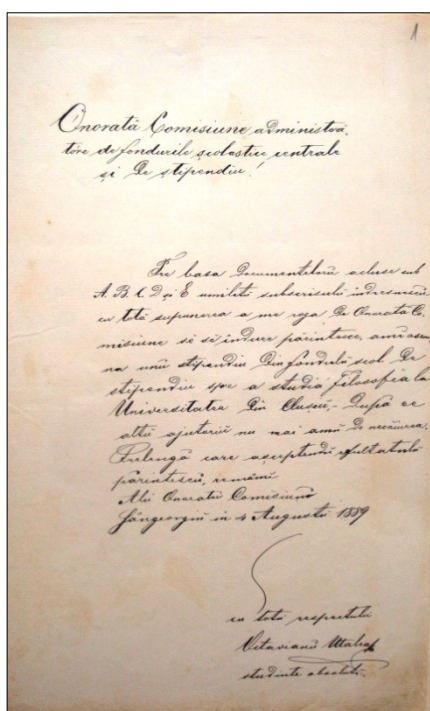 1
Onorată Comisiune administră-
tóre de fondurile scolastice centrale
și de stipendie!
Pre basa Documentelorŭ acluse sub
A. B. C. D și E umilitŭ subscrisulŭ îndresnescŭ
cu totă supunerea a me ruga De Onorata Co,
misiune se se îndure părintesce, ami asem
na unŭ stipendiu Din fondulŭ scol. De
stipendiu spre a studiá filosofia la
Universitatea Din Clusiŭ, - După ce
altŭ ajutoriŭ nu mai amŭ De nicăirea.
Prelengă care asceptendŭ resultatulŭ
părintescŭ, remânŭ
Alŭ Onoratei Comisiunŭ
Sângeorgiŭ in 4 Augustŭ 1889
cu totŭ respectulŭ
Octavianŭ
studinte absolutŭ.